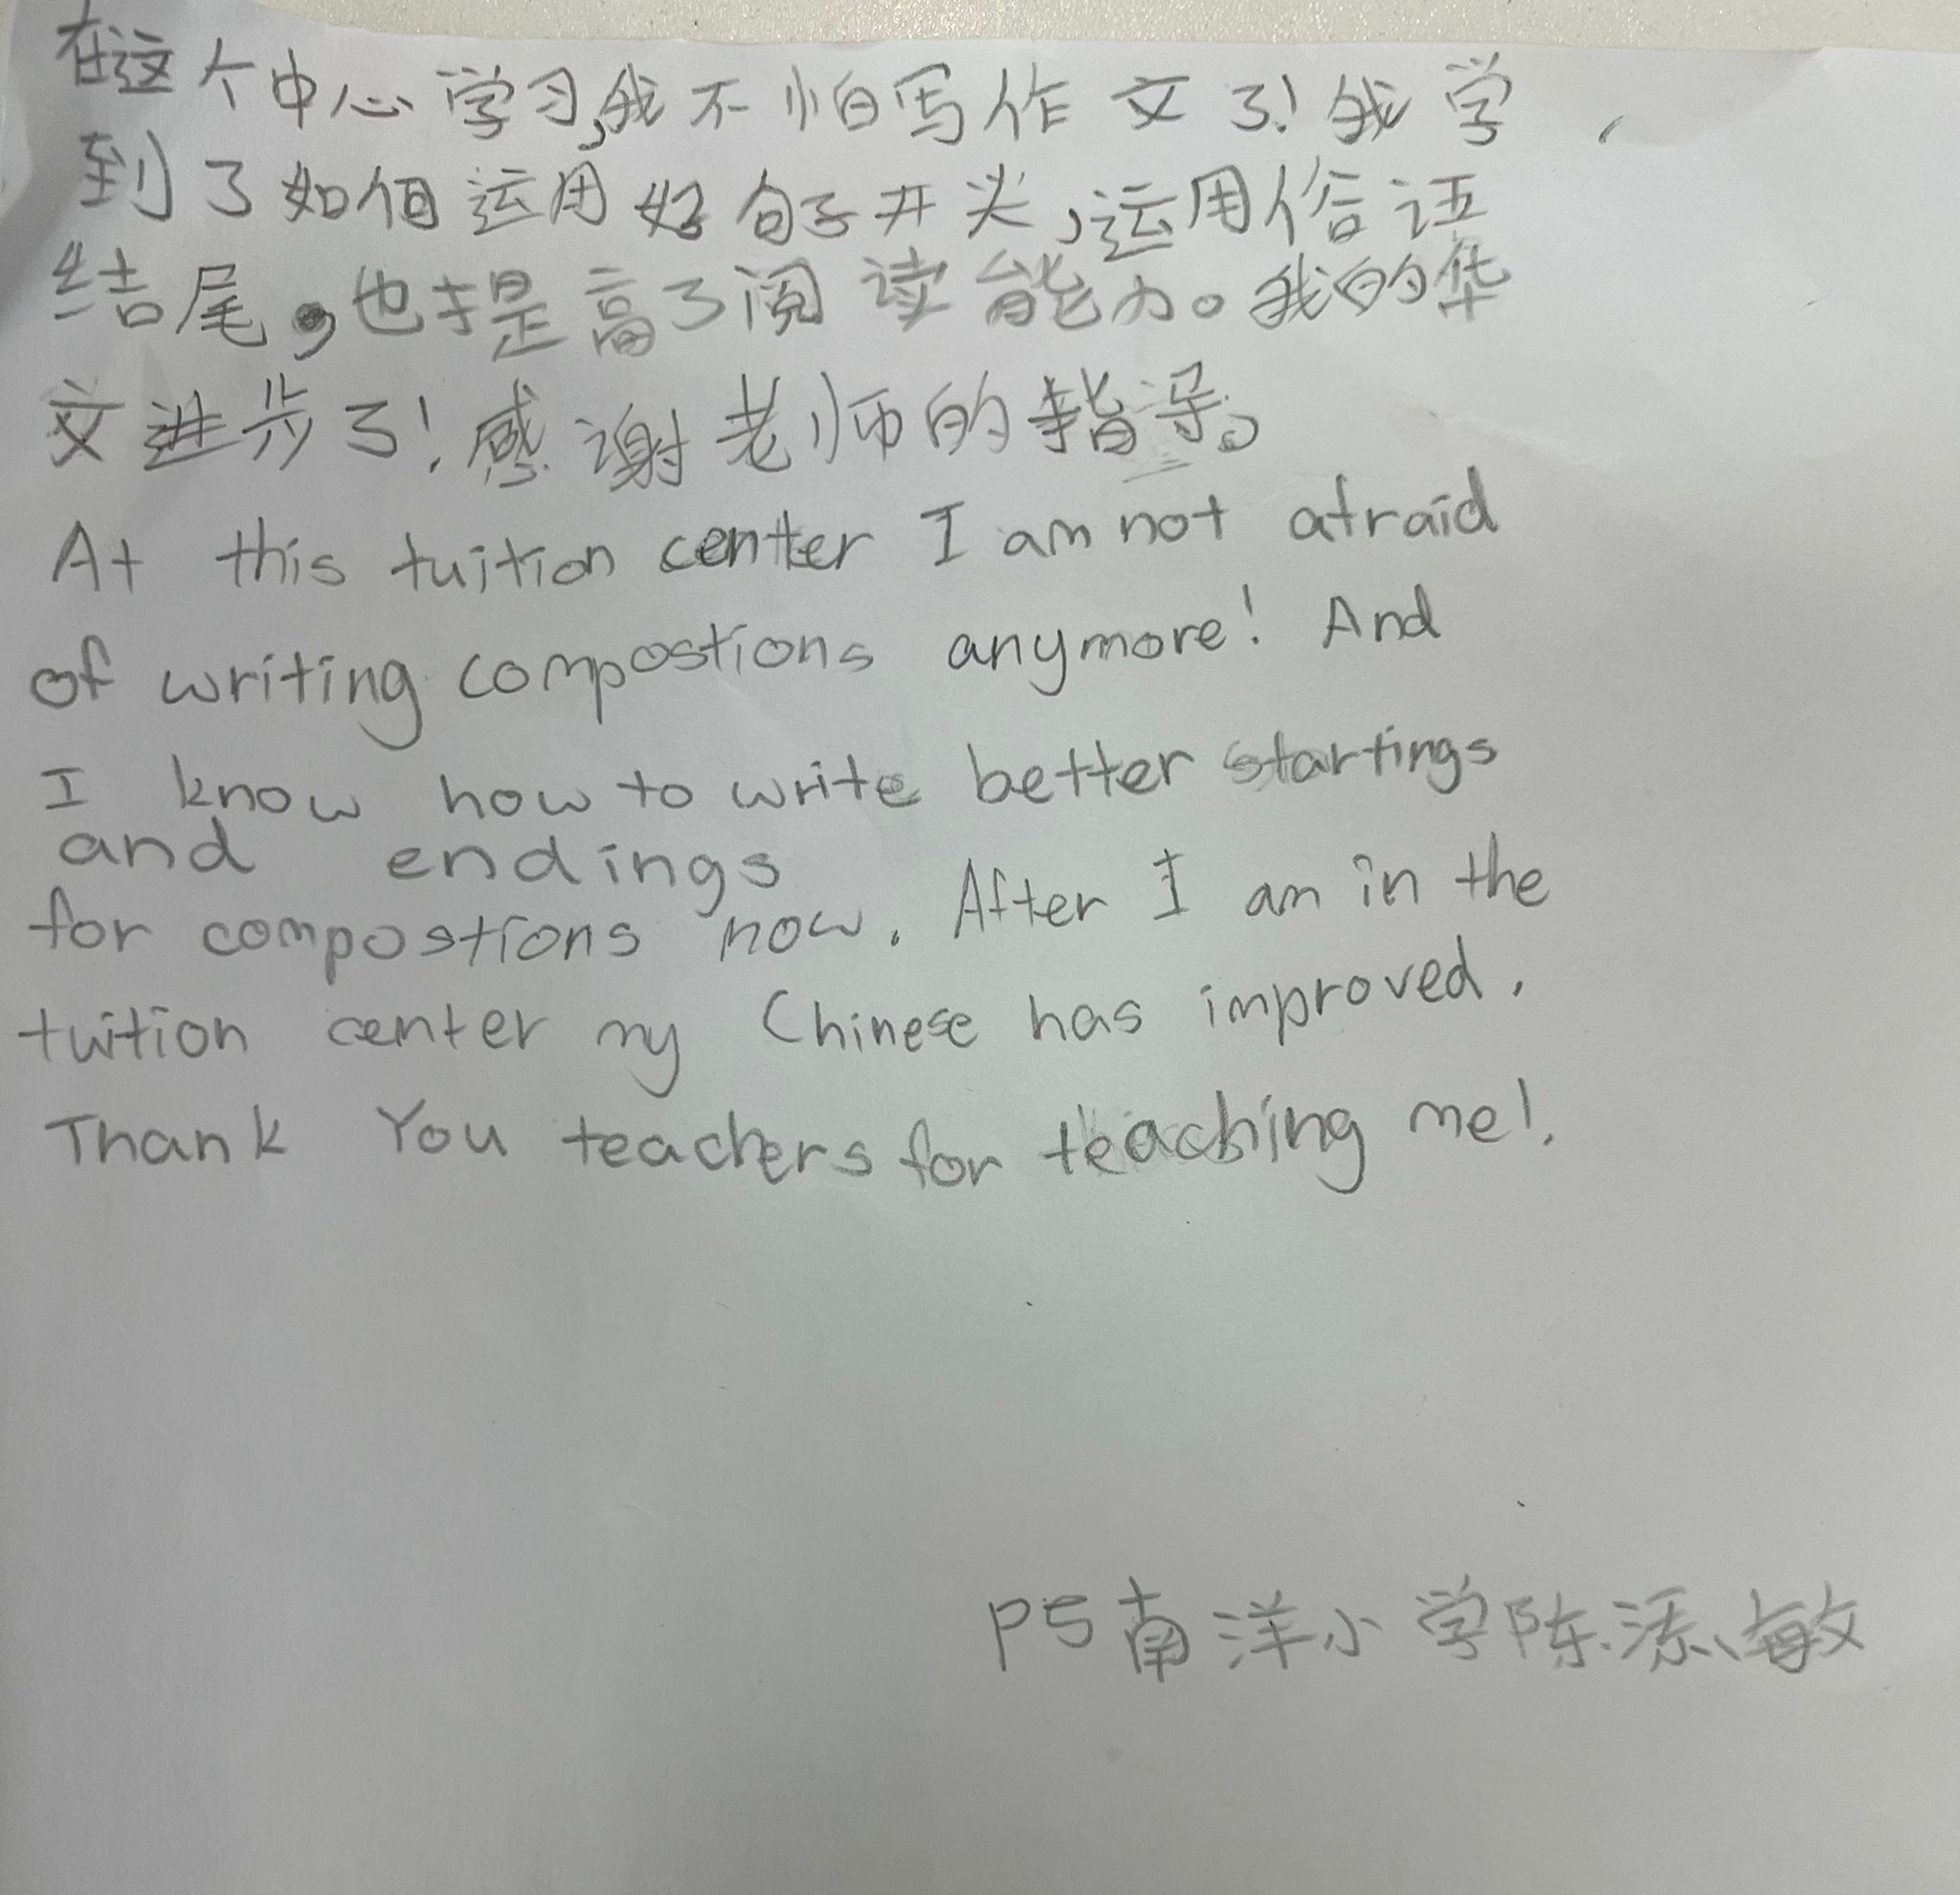 在这个中心学习,我不怕写作文了!我学
到了如何运用好句子开头,运用俗语
结尾,也提高了阅读能力。我的华
文进步了!感谢老师的指导。
At this tuition center I am not afraid
of writing compostions anymore! And
I know how to write better startings
and endings
for compostions now. After I am in the
tuition center my Chinese has improved.
Thank You teachers for teaching me!.
P5南洋小学陈添敏